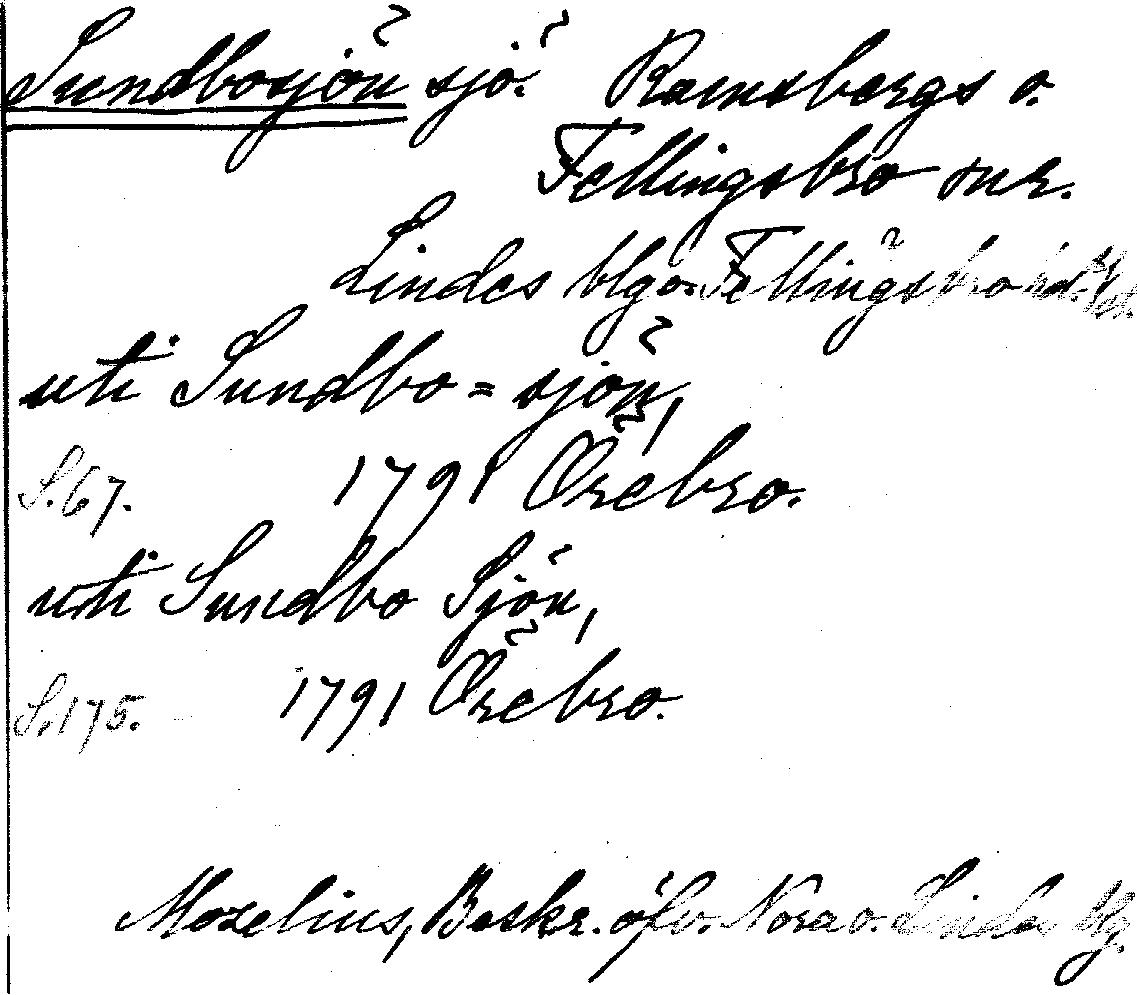 Sundbosjön sjö. Ramsbergs o.
Fellingsbro snr.
Lindes blg o. Fellingsbro hd.
uti Sundbo = sjön,
S. 67. 1791 Örebro.
uti Sundbo Sjön,
S. 175. 1791 Örebro.
Mozelius, Beskr. öfv. Nora o. Linde blg.